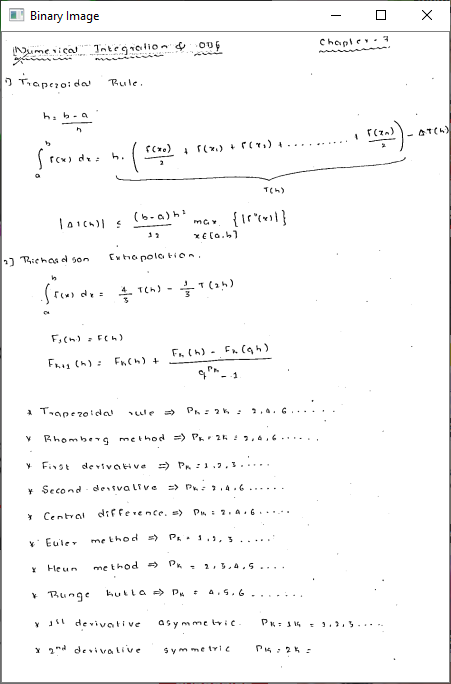 Binary Image
Numerical Integration & ODE Chapter - 7
1) Trapezoidal Rule.
h = b - a / n
∫_a^b f(x) dx = h. ( f(x₀)/2 + f(x₁) + f(x₂) + .......... + f(xₙ)/2 ) - ΔT(h)
T(h)
|ΔT(h)| ≤ (b-a)h²/12 max x∈[a,b] {|f''(x)|}
2] Richardson Extrapolation.
∫_a^b f(x) dx = 4/3 T(h) - 1/3 T(2h)
F₁(h) = F(h)
Fₖ₊₁(h) = Fₖ(h) + Fₖ(h) - Fₖ(qh) / q^Pₖ - 1
* Trapezoidal rule ⇒ Pₖ = 2k = 2,4,6......
* Rhomberg method ⇒ Pₖ = 2k = 2,4,6......
* First derivative ⇒ Pₖ = 1,2,3.....
* Second derivative ⇒ Pₖ = 2,4,6......
* Central difference. ⇒ Pₖ = 2,4,6.....
* Euler method ⇒ Pₖ = 1,2,3 .....
* Heun method ⇒ Pₖ = 2,3,4,5 ....
* Runge kutta ⇒ Pₖ = 4,5,6 .......
* 1st derivative asymmetric. Pₖ = 1k = 1,2,3....
* 2nd derivative symmetric Pₖ = 2k =